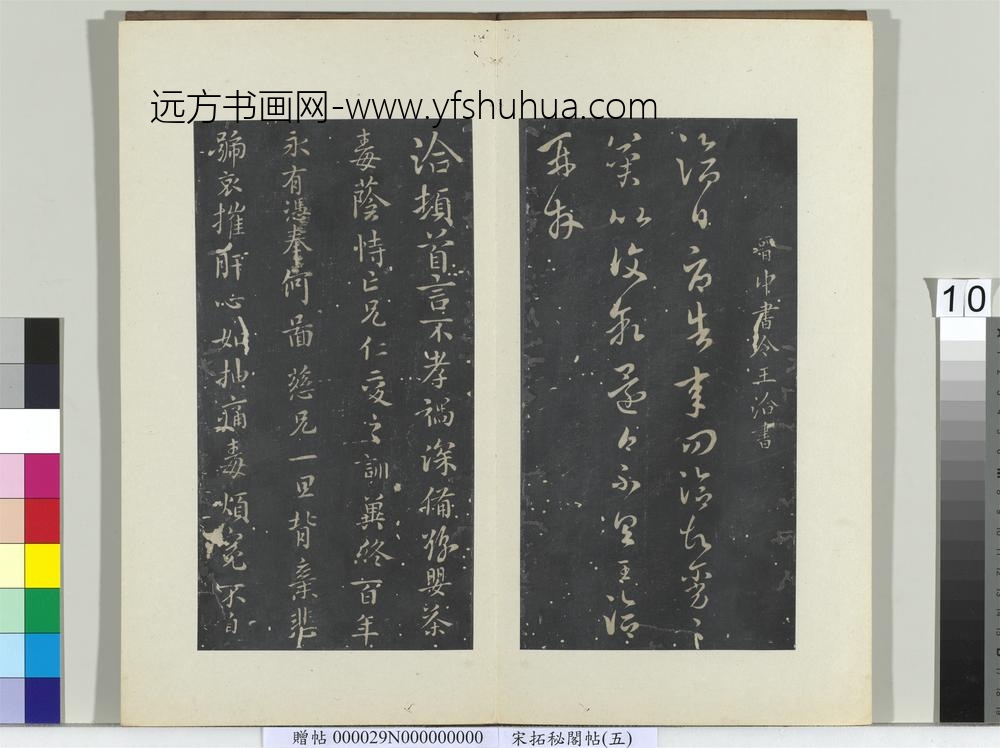 远方书画网-www.yfshuhua.com
晉中書令王洽書
洽白
不具王洽
再拜
洽頓首言不孝禍深備豫嬰荼
毒蔭恃亡兄仁愛之訓冀終百年
永有憑奉何圖慈兄一旦背棄悲
號哀摧肝心如抽痛毒煩冤不自
10
贈帖 000029N000000000 宋拓秘閣帖(五)